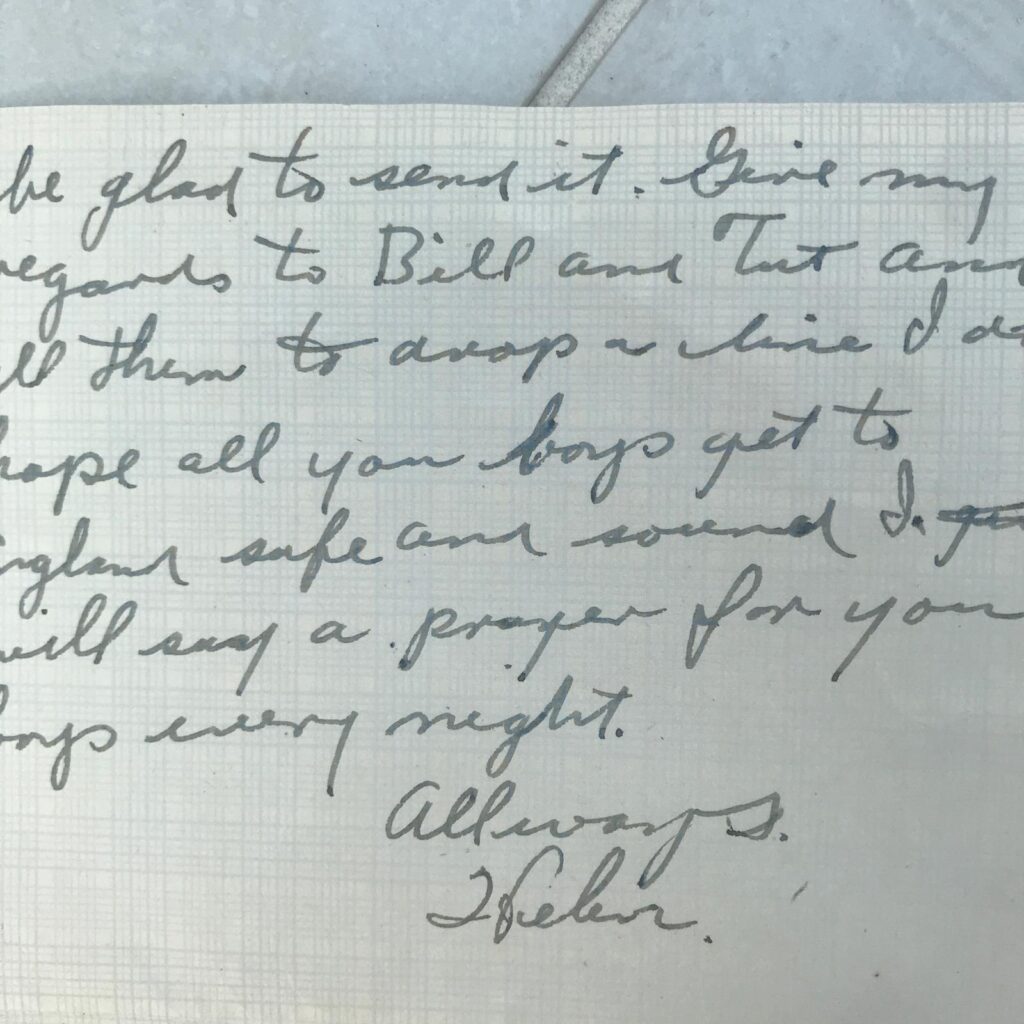 be glad to send it. Give my
regards to Bill and Tut and
ell them to drop a line I do
hope all you boys get to
England safe and sound I.
will say a prayer for you
boys every night.
Allways.
Helen.